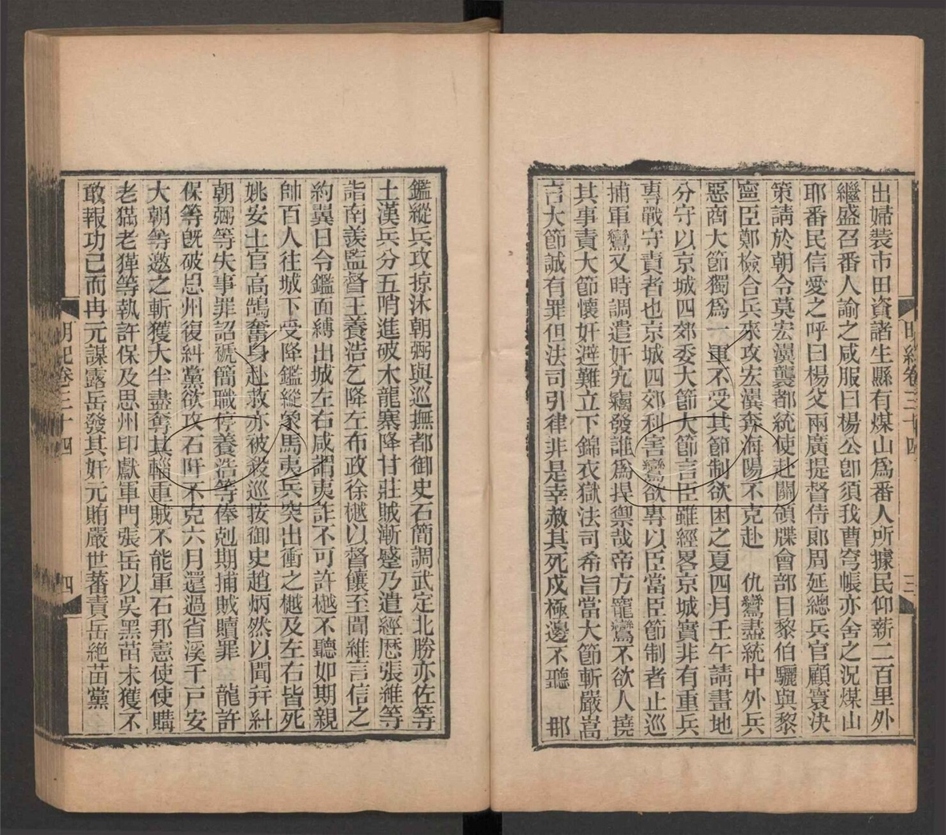 出婦裝市田資諸生縣有煤山爲番人所據民仰薪二百里外
繼盛召番人諭之咸服曰楊公卽須我曹穹帳亦舍之況煤山
耶番民信愛之呼曰楊父兩廣提督侍郎周延總兵官顧寰決
策請於朝令莫宏瀷襲都統使赴關領牒會部目黎伯驪與黎
寧臣鄭檢合兵來攻宏瀷奔海陽不克赴　仇鸞盡統中外兵
惡商大節獨爲一軍不受其節制欲困之夏四月壬午請畫地
分守以京城四郊委大節大節言臣雖經畧京城實非有重兵
專戰守責者也京城四郊利害鸞欲專以臣當臣節制者止巡
捕軍鸞又時調遣奸宄竊發誰爲捍禦哉帝方寵鸞不欲人撓
其事責大節懷奸避難立下錦衣獄法司希旨當大節斬嚴嵩
言大節誠有罪但法司引律非是幸赦其死戍極邊不聽　那
明紀卷三十四
三
鑑縱兵攻掠沐朝弼與巡撫都御史石簡調武定北勝亦佐等
土漢兵分五哨進破木龍寨降甘莊賊漸蹙乃遣經歷張維等
詣南羨監督王養浩乞降左布政徐樾以督饟至聞維言信之
約翼日令鑑面縛出城左右咸謂夷詐不可許樾不聽如期親
帥百人往城下受降鑑縱象馬夷兵突出衝之樾及左右皆死
姚安土官高鵠奮身赴救亦被殺巡按御史趙炳然以聞幷糾
朝弼等失事罪詔褫簡職停養浩等俸剋期捕賊贖罪　龍許
保等旣破思州復糾黨欲攻石阡不克六月還過省溪千戶安
大朝等邀之斬獲大半盡奪其輜重賊不能軍石邦憲使使購
老㺐老獐等執許保及思州印獻軍門張岳以吳黑苗未獲不
敢報功已而冉元謀露岳發其奸元賄嚴世蕃責岳絕苗黨
明紀卷三十四
四